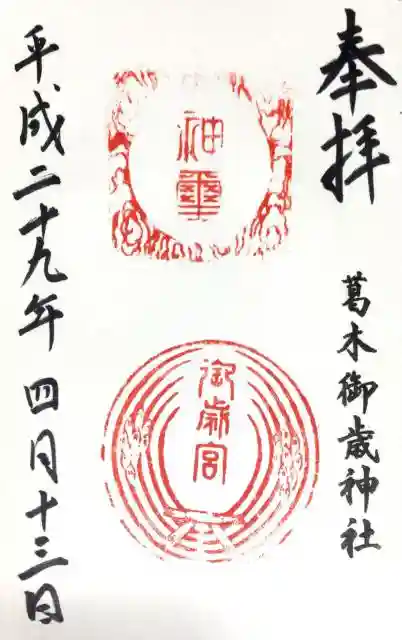 奉拝
葛木御歳神社
神璽
御歳宮
平成二十九年四月十三日